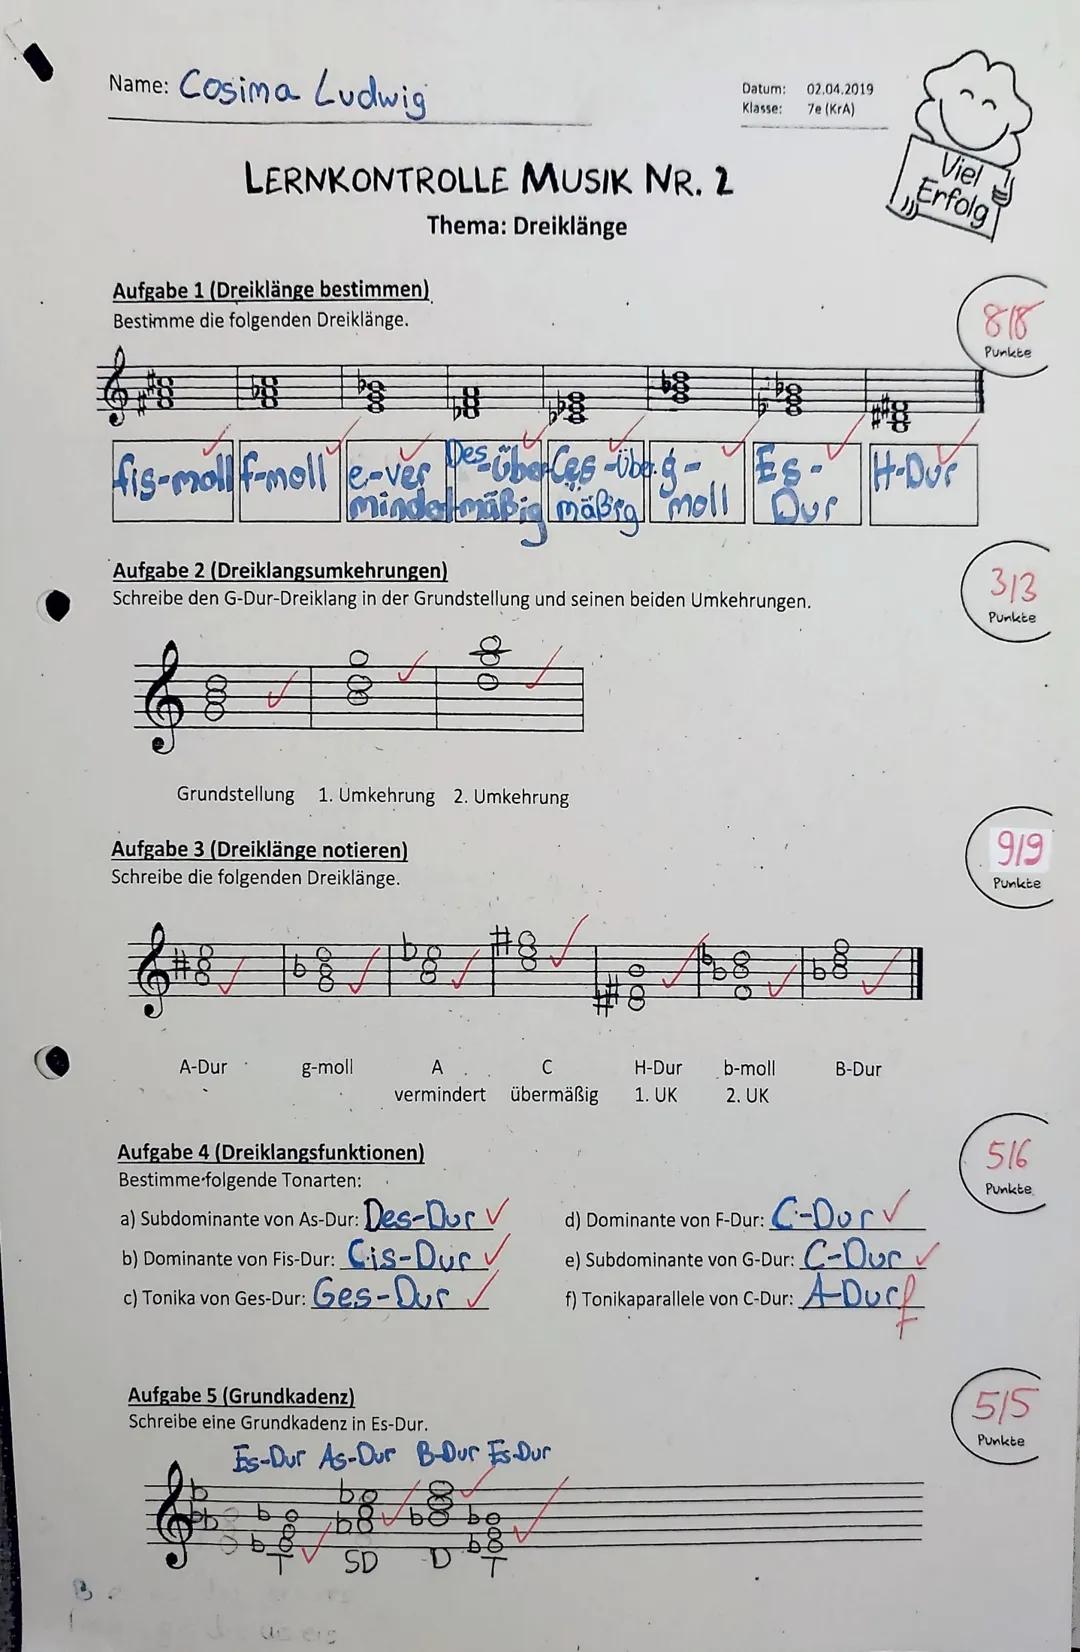 Name: Cosima Ludwig
Datum: 02.04.2019
Klasse: 7e (KrA)
Viel
Erfolg
LERNKONTROLLE MUSIK NR. 2
Thema: Dreiklänge
Aufgabe 1 (Dreiklänge bestimmen)
Bestimme die folgenden Dreiklänge.
8/8
Punkte
fis-moll f-moll e-ver mindert Des-über mäßig Ces-über mäßig g-moll Es-Dur H-Dur
Aufgabe 2 (Dreiklangsumkehrungen)
Schreibe den G-Dur-Dreiklang in der Grundstellung und seinen beiden Umkehrungen.
3/3
Punkte
Grundstellung 1. Umkehrung 2. Umkehrung
Aufgabe 3 (Dreiklänge notieren)
Schreibe die folgenden Dreiklänge.
9/9
Punkte
A-Dur g-moll A C H-Dur b-moll B-Dur
vermindert übermäßig 1. UK 2. UK
Aufgabe 4 (Dreiklangsfunktionen)
Bestimme folgende Tonarten:
5/6
Punkte
a) Subdominante von As-Dur: Des-Dur
b) Dominante von Fis-Dur: Cis-Dur
c) Tonika von Ges-Dur: Ges-Dur
d) Dominante von F-Dur: C-Dur
e) Subdominante von G-Dur: C-Dur
f) Tonikaparallele von C-Dur: A-Dur f
Aufgabe 5 (Grundkadenz)
Schreibe eine Grundkadenz in Es-Dur.
5/5
Punkte
Es-Dur As-Dur B-Dur Es-Dur
T SD D T